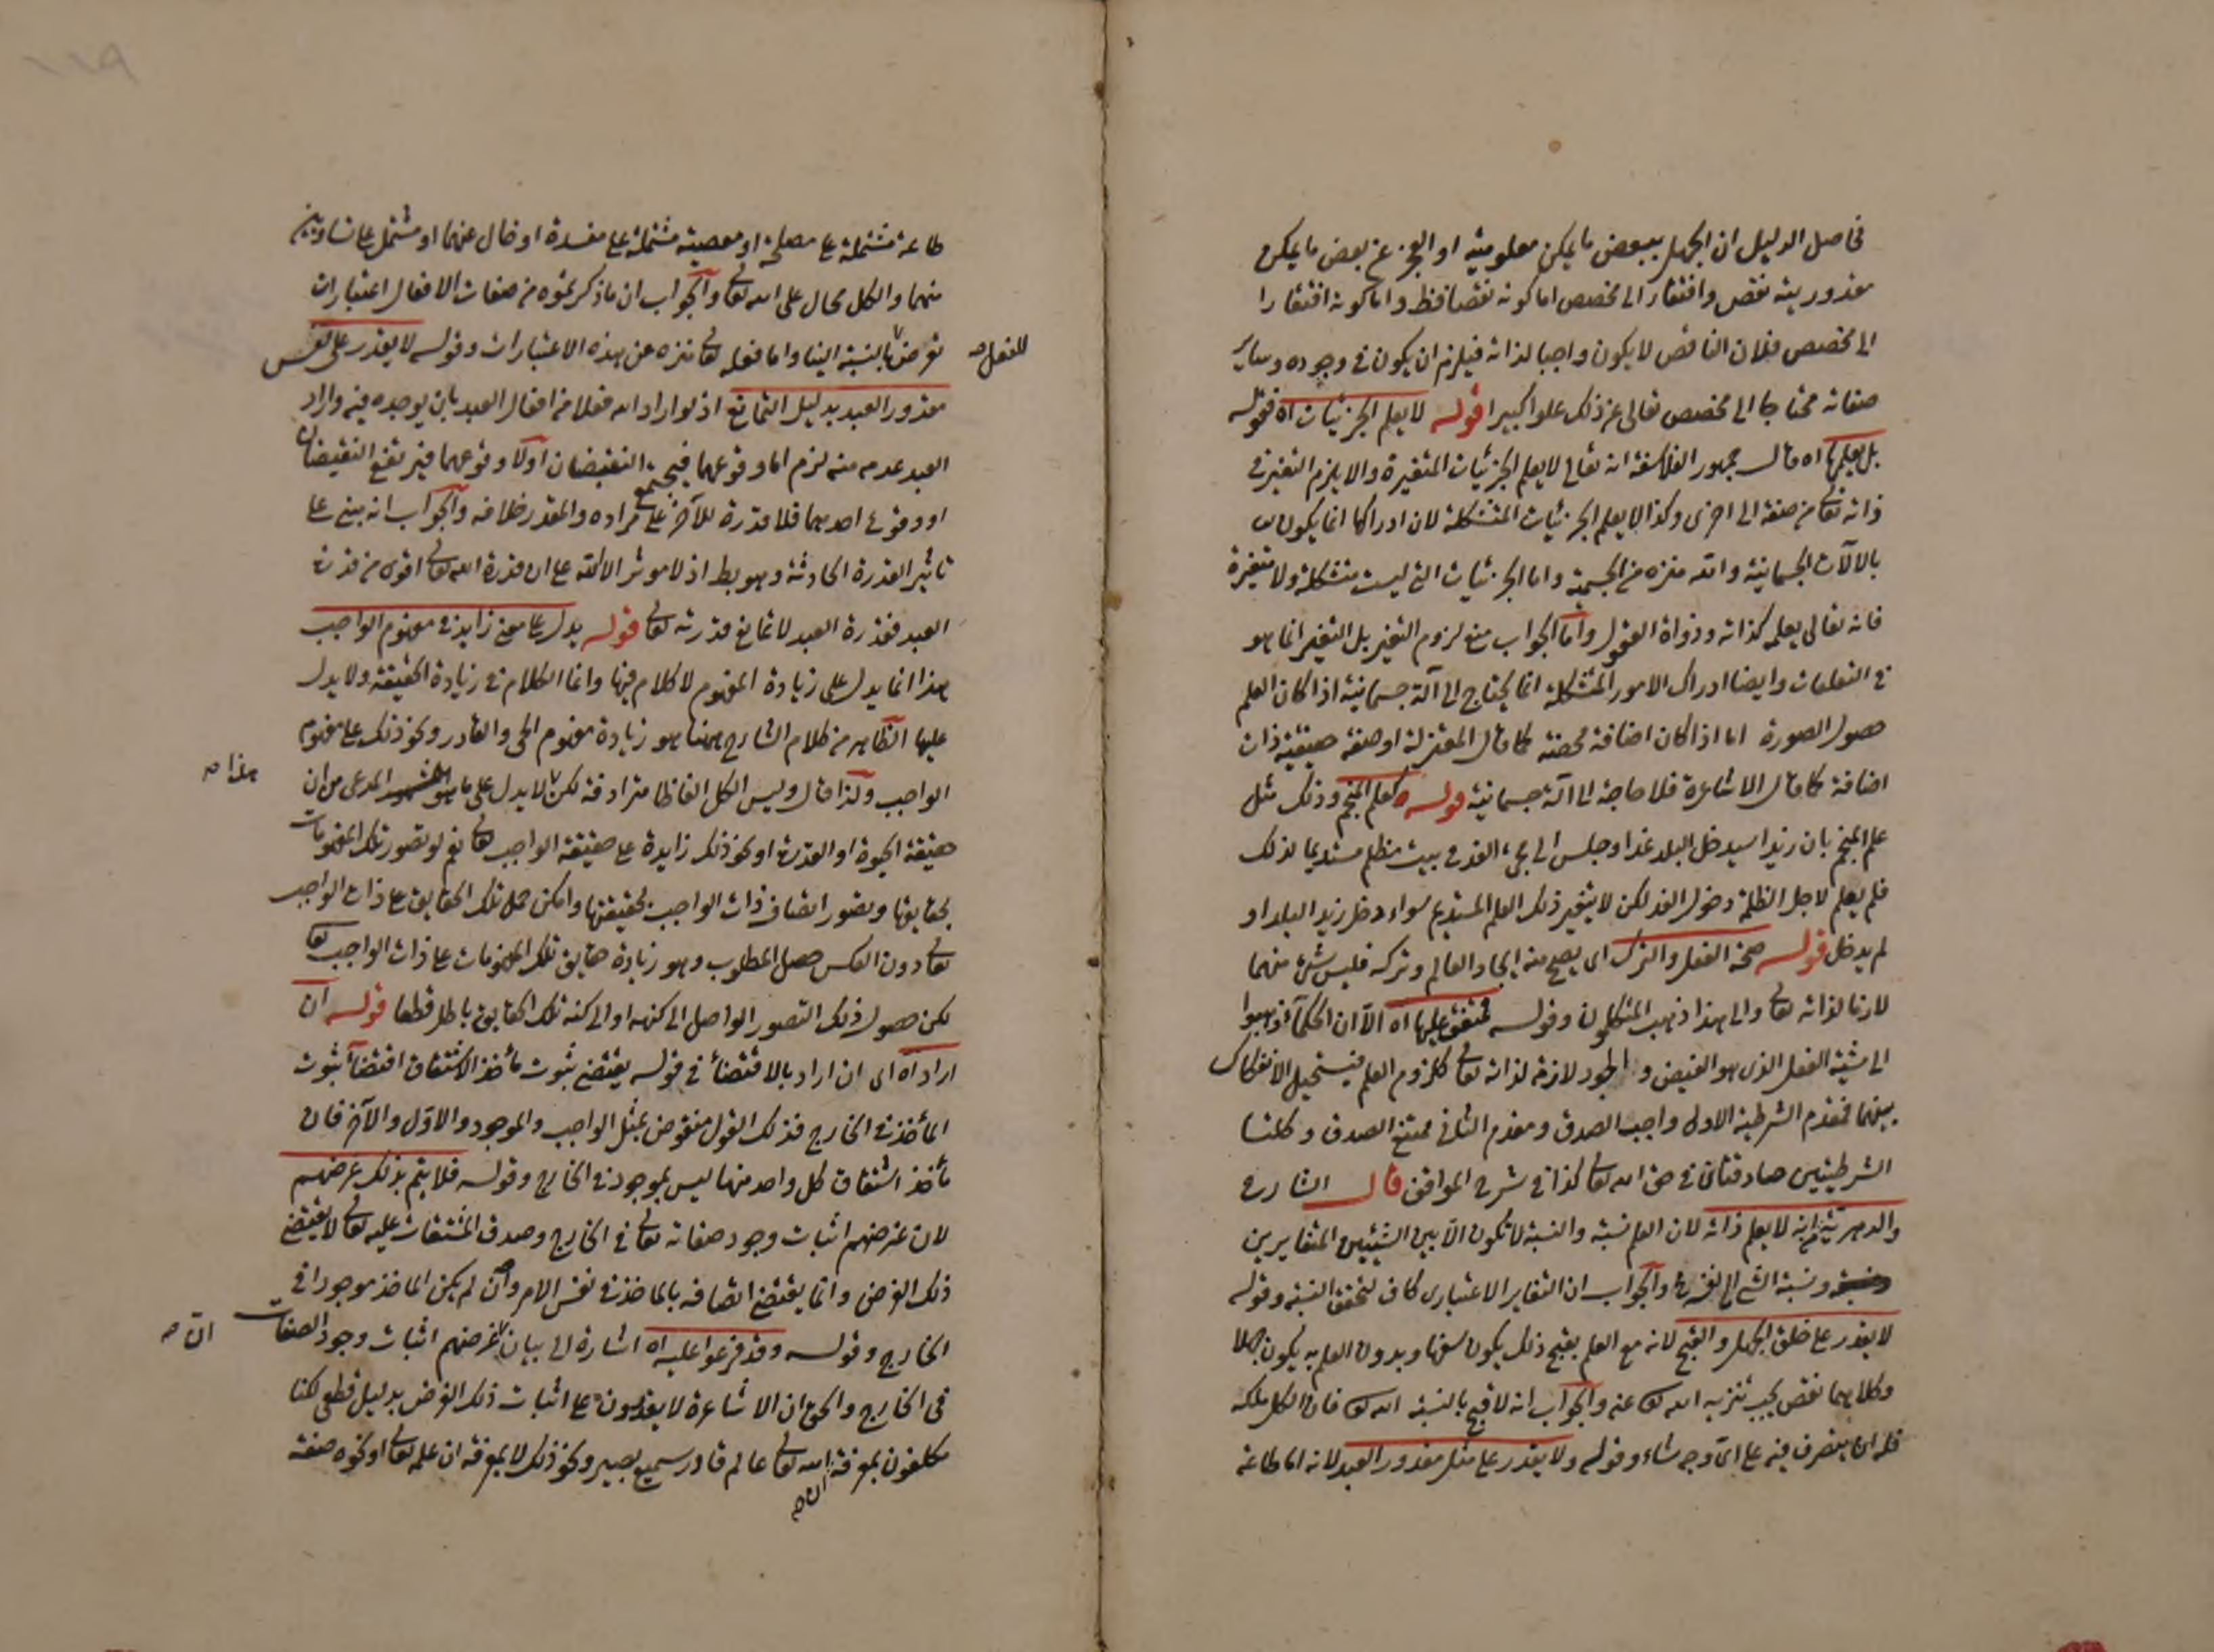 فحاصل الدليل ان الجهل ببعض ما يمكن معلوميته او العجز عن بعض ما يمكن
مقدوريته نقص وافتقار الى مخصص اما كونه نقصا فظ واما كونه افتقارا
الى مخصص فلان الناقص لا يكون واجبا لذاته فيلزم ان يكون في وجوده وساير
صفاته محتاجا الى مخصص تعالى عن ذلك علوا كبيرا قوله لا يعلم الجزئيات اه فقوله
بل يعلمها اه قال جمهور الفلاسفة انه تعالى لا يعلم الجزئيات المتغيرة والا يلزم التغير في
ذاته تعالى من صفة الى اخرى وكذا لا يعلم الجزئيات المتشكلة لان ادراكها انما يكون
بالآلات الجسمانية وانه منزه من الجسمية واما الجزئيات التي ليست متشكلة ولا متغيرة
فانه تعالى يعلمه كذاته وذواة العقول واما الجواب منع لزوم التغير بل التغير انما هو
في التعلقات وايضا ادراك الامور المتشكلة انما يحتاج الى آلة جسمانية اذا كان العلم
حصول الصورة اما اذا كان اضافة محضة كما قال المعتزلة او صفة حقيقية ذات
اضافة كما قال الاشاعرة فلا حاجة الى آلة جسمانية قوله كعلم المنجم وذلك مثل
علم المنجم بان زيدا سيدخل البلد غدا وجلس الى مجيء الغد في بيت مظلم مستديما لذلك
فلم يعلم لاجل الظلمة دخول الغد لكن لا يتغير ذلك العلم المستديم سواء دخل زيد البلد او
لم يدخل قوله صحة الفعل والترك اى يصح منه ايجاد العالم وتركه فليس شئ منهما
لازما لذاته تعالى والى هذا ذهب المتكلمون وقوله متفق عليها اه الا ان الحكماء ذهبوا
الى مشية الفعل الذى هو الفيض والجود لازمة لذاته تعالى كلزوم العلم فيستحيل الانفكاك
بينهما فمقدم الشرطية الاولى واجب الصدق ومقدم الثانى ممتنع الصدق وكلتا
الشرطيتين صادقتان في حق الله تعالى كذا في شرح المواقف قال الشارح
والدهرية انه لا يعلم ذاته لان العلم نسبة والنسبة لا تكون الا بين الشيئين المتغايرين
ونسبة الشئ الى نفسه والجواب ان التغاير الاعتبارى كاف لتحقق النسبة وقوله
لا يقدر على خلق الجهل والقبح لانه مع العلم بقبح ذلك يكون سفها وبدون العلم به يكون جهلا
وكلاهما نقص يجب تنزيه الله تعالى عنه والجواب انه لا قبح بالنسبة الله تعالى فان الكل ملكه
فله ان يتصرف فيه على اى وجه شاء وقوله ولا يقدر على مثل مقدور العبد لانه اما طاعة
طاعة مشتملة على مصلحة او معصية مشتملة على مفسدة او خال عنهما او مشتمل على متساويين
منهما والكل محال على الله تعالى والجواب ان ما ذكرتموه من صفات الافعال اعتبارات
تعرض بالنسبة الينا واما فعله تعالى منزه عن هذه الاعتبارات وقوله لا يقدر على نفس
للفعل صح
مقدور العبد بدليل التمانع اذ لو اراد الله فعلا من افعال العبد بان يوجده فيه واراد
العبد عدمه منه لزم اما وقوعهما فيجتمع النقيضان او لا وقوعهما فيرتفع النقيضان
او وقوع احدهما فلا قدرة للآخر على مراده والمقدر خلافه والجواب انه مبنى على
تاثير القدرة الحادثة وهو بط اذ لا موثر الا الله على ان قدرة الله تعالى اقوى من قدرة
العبد فقدرة العبد لا تمانع قدرته تعالى قوله يدل على معنى زايد في مفهوم الواجب
هذا انما يدل على زيادة المفهوم لا كلام فيها وانما الكلام في زيادة الحقيقة ولا يدل
عليها الظاهر من كلام الشارح ههنا هو زيادة مفهوم الحى والقادر ونحو ذلك على مفهوم
الواجب ولذا قال وليس الكل الفاظا مترادفة لكن لا يدل على ما هو المدعى من ان
هذا صح
حقيقة الحيوة او القدرة او نحو ذلك زايدة على حقيقة الواجب تعالى نعم لو تصور تلك المفهومات
بحقايقها وتصور اتصاف ذات الواجب بحقيقتها وامكن حمل تلك الحقايق على ذات الواجب
تعالى دون العكس حصل المطلوب وهو زيادة حقايق تلك المفهومات على ذات الواجب تعالى
لكن حصول ذلك التصور الواصل الى كنهه او الى كنه تلك الحقايق باطل قطعا قوله ان
اراد اه اى ان اراد بالاقتضاء في قوله يقتضى ثبوت مأخذ الاشتقاق اقتضاء ثبوت
المأخذ في الخارج فذلك القول منقوض بمثل الواجب والموجود والاول والآخر فان
مأخذ اشتقاق كل واحد منها ليس بموجود في الخارج وقوله فلا يتم بذلك غرضهم
لان غرضهم اثبات وجود صفاته تعالى في الخارج وصدق المشتقات عليه تعالى لا يقتضى
ذلك الغرض وانما يقتضى اتصافه بالماخذ في نفس الامر وان لم يكن الماخذ موجودا في
الخارج وقوله وقد فرعوا عليه اه اشارة الى بيان غرضهم اثبات وجود الصفات
ان صح
فى الخارج والحق ان الاشاعرة لا يقدرون على اثبات ذلك الغرض بدليل قطعى لكنا
مكلفون بمعرفة الله تعالى عالم قادر سميع بصير ونحو ذلك لا بمعرفة ان علمه تعالى او نحوه صفة
ان صح